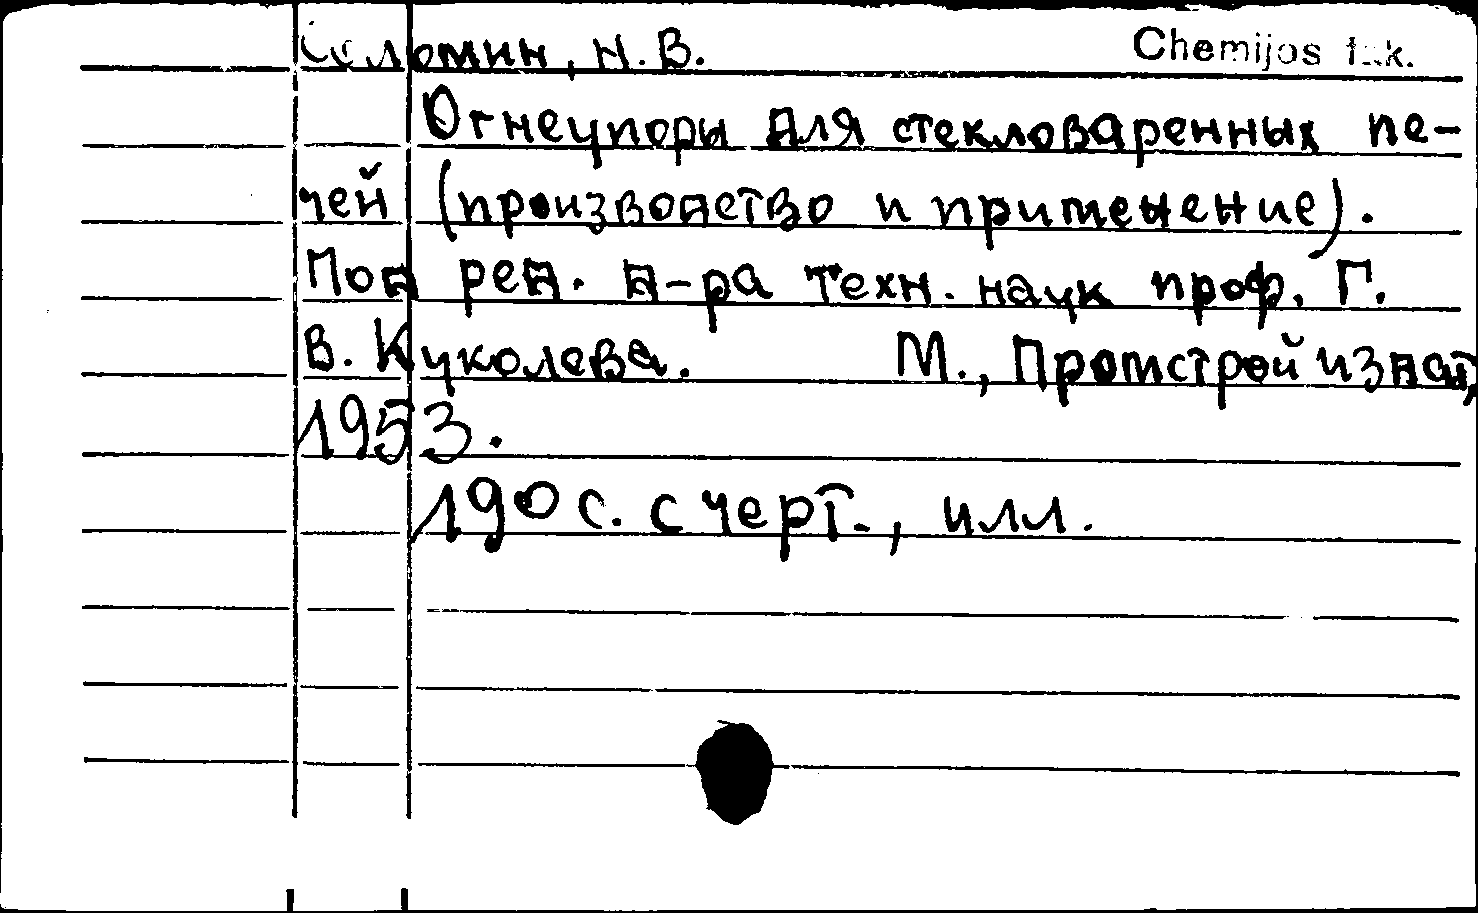 Соломин, Н.В. Chemijos fak.
Огнеупоры для стекловаренных пе-
чей (производство и применение).
Под ред. д-ра техн. наук проф. Г.
В. Куколева. М., Промстройиздат,
1953.
190 с. с черт., илл.